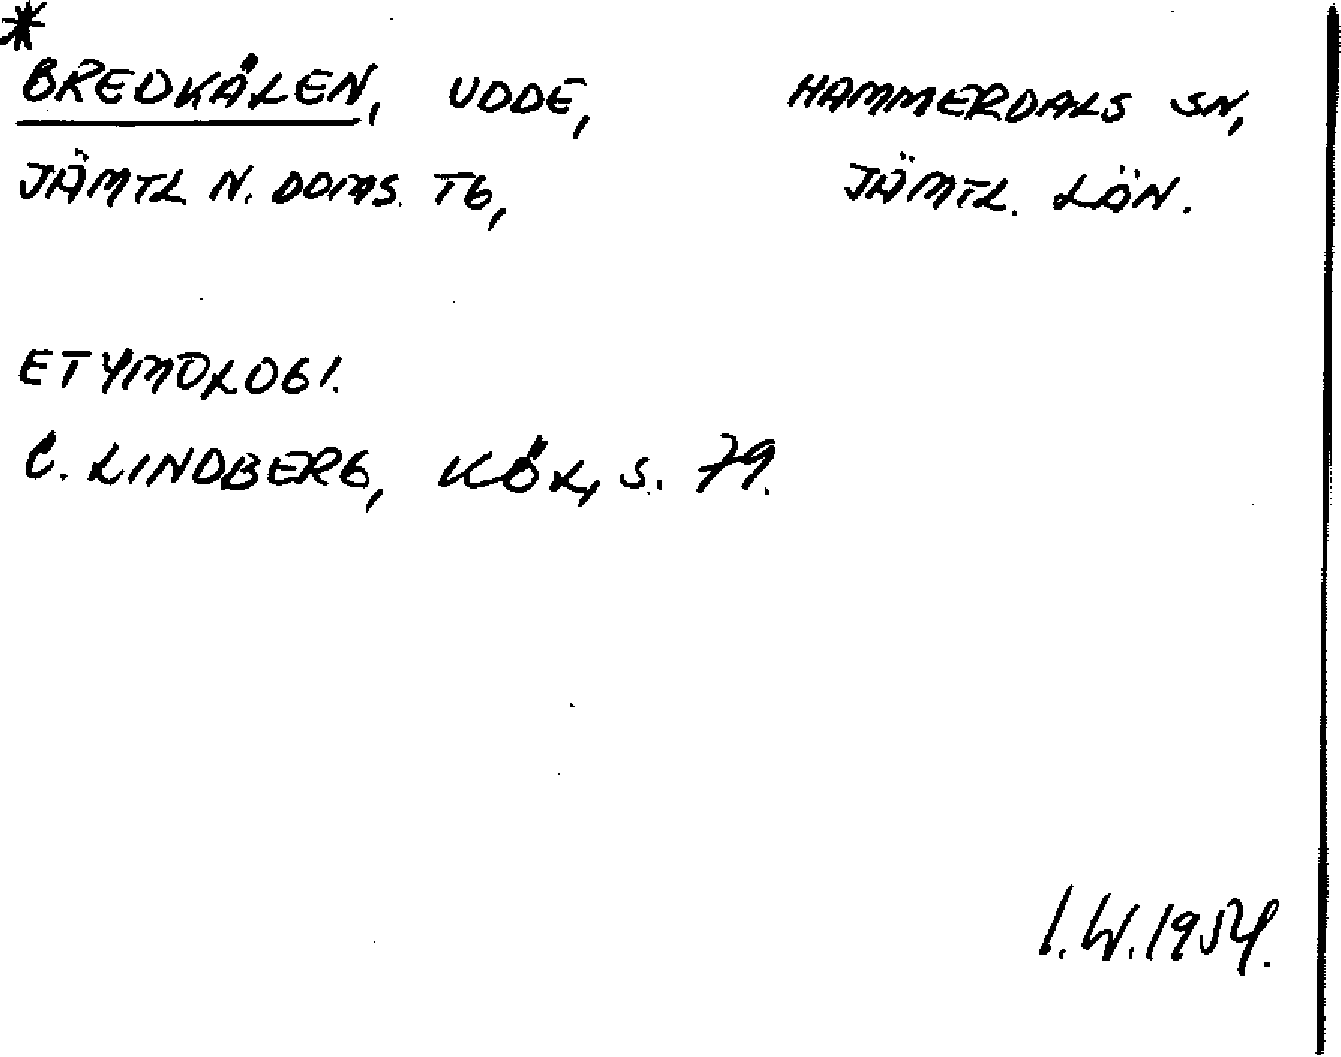 *
BREDKÅLEN, UDDE, HAMMERDALS SN,
JÄMTL N. DOMS. TG, JÄMTL. LÄN.
ETYMOLOGI.
C. LINDBERG, KÖL, S. 79.
I.W. 1954.